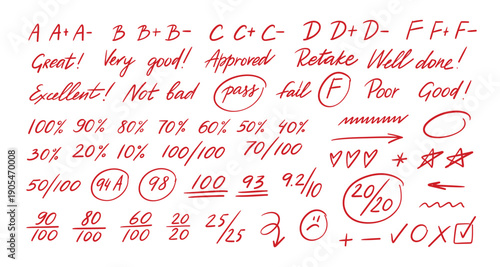 A A+ A- B B+ B- C C+ C- D D+ D- F F+ F-
Great! Very good! Approved Retake Well done!
Excellent! Not bad pass fail F Poor Good!
100% 90% 80% 70% 60% 50% 40%
30% 20% 10% 100/100 70/100
50/100 94A 98 100 93 9.2/10 20/20
90/100 80/100 60/100 20/20 25/25
+ - ✓ O X ☑
Adobe Stock | #1905470008